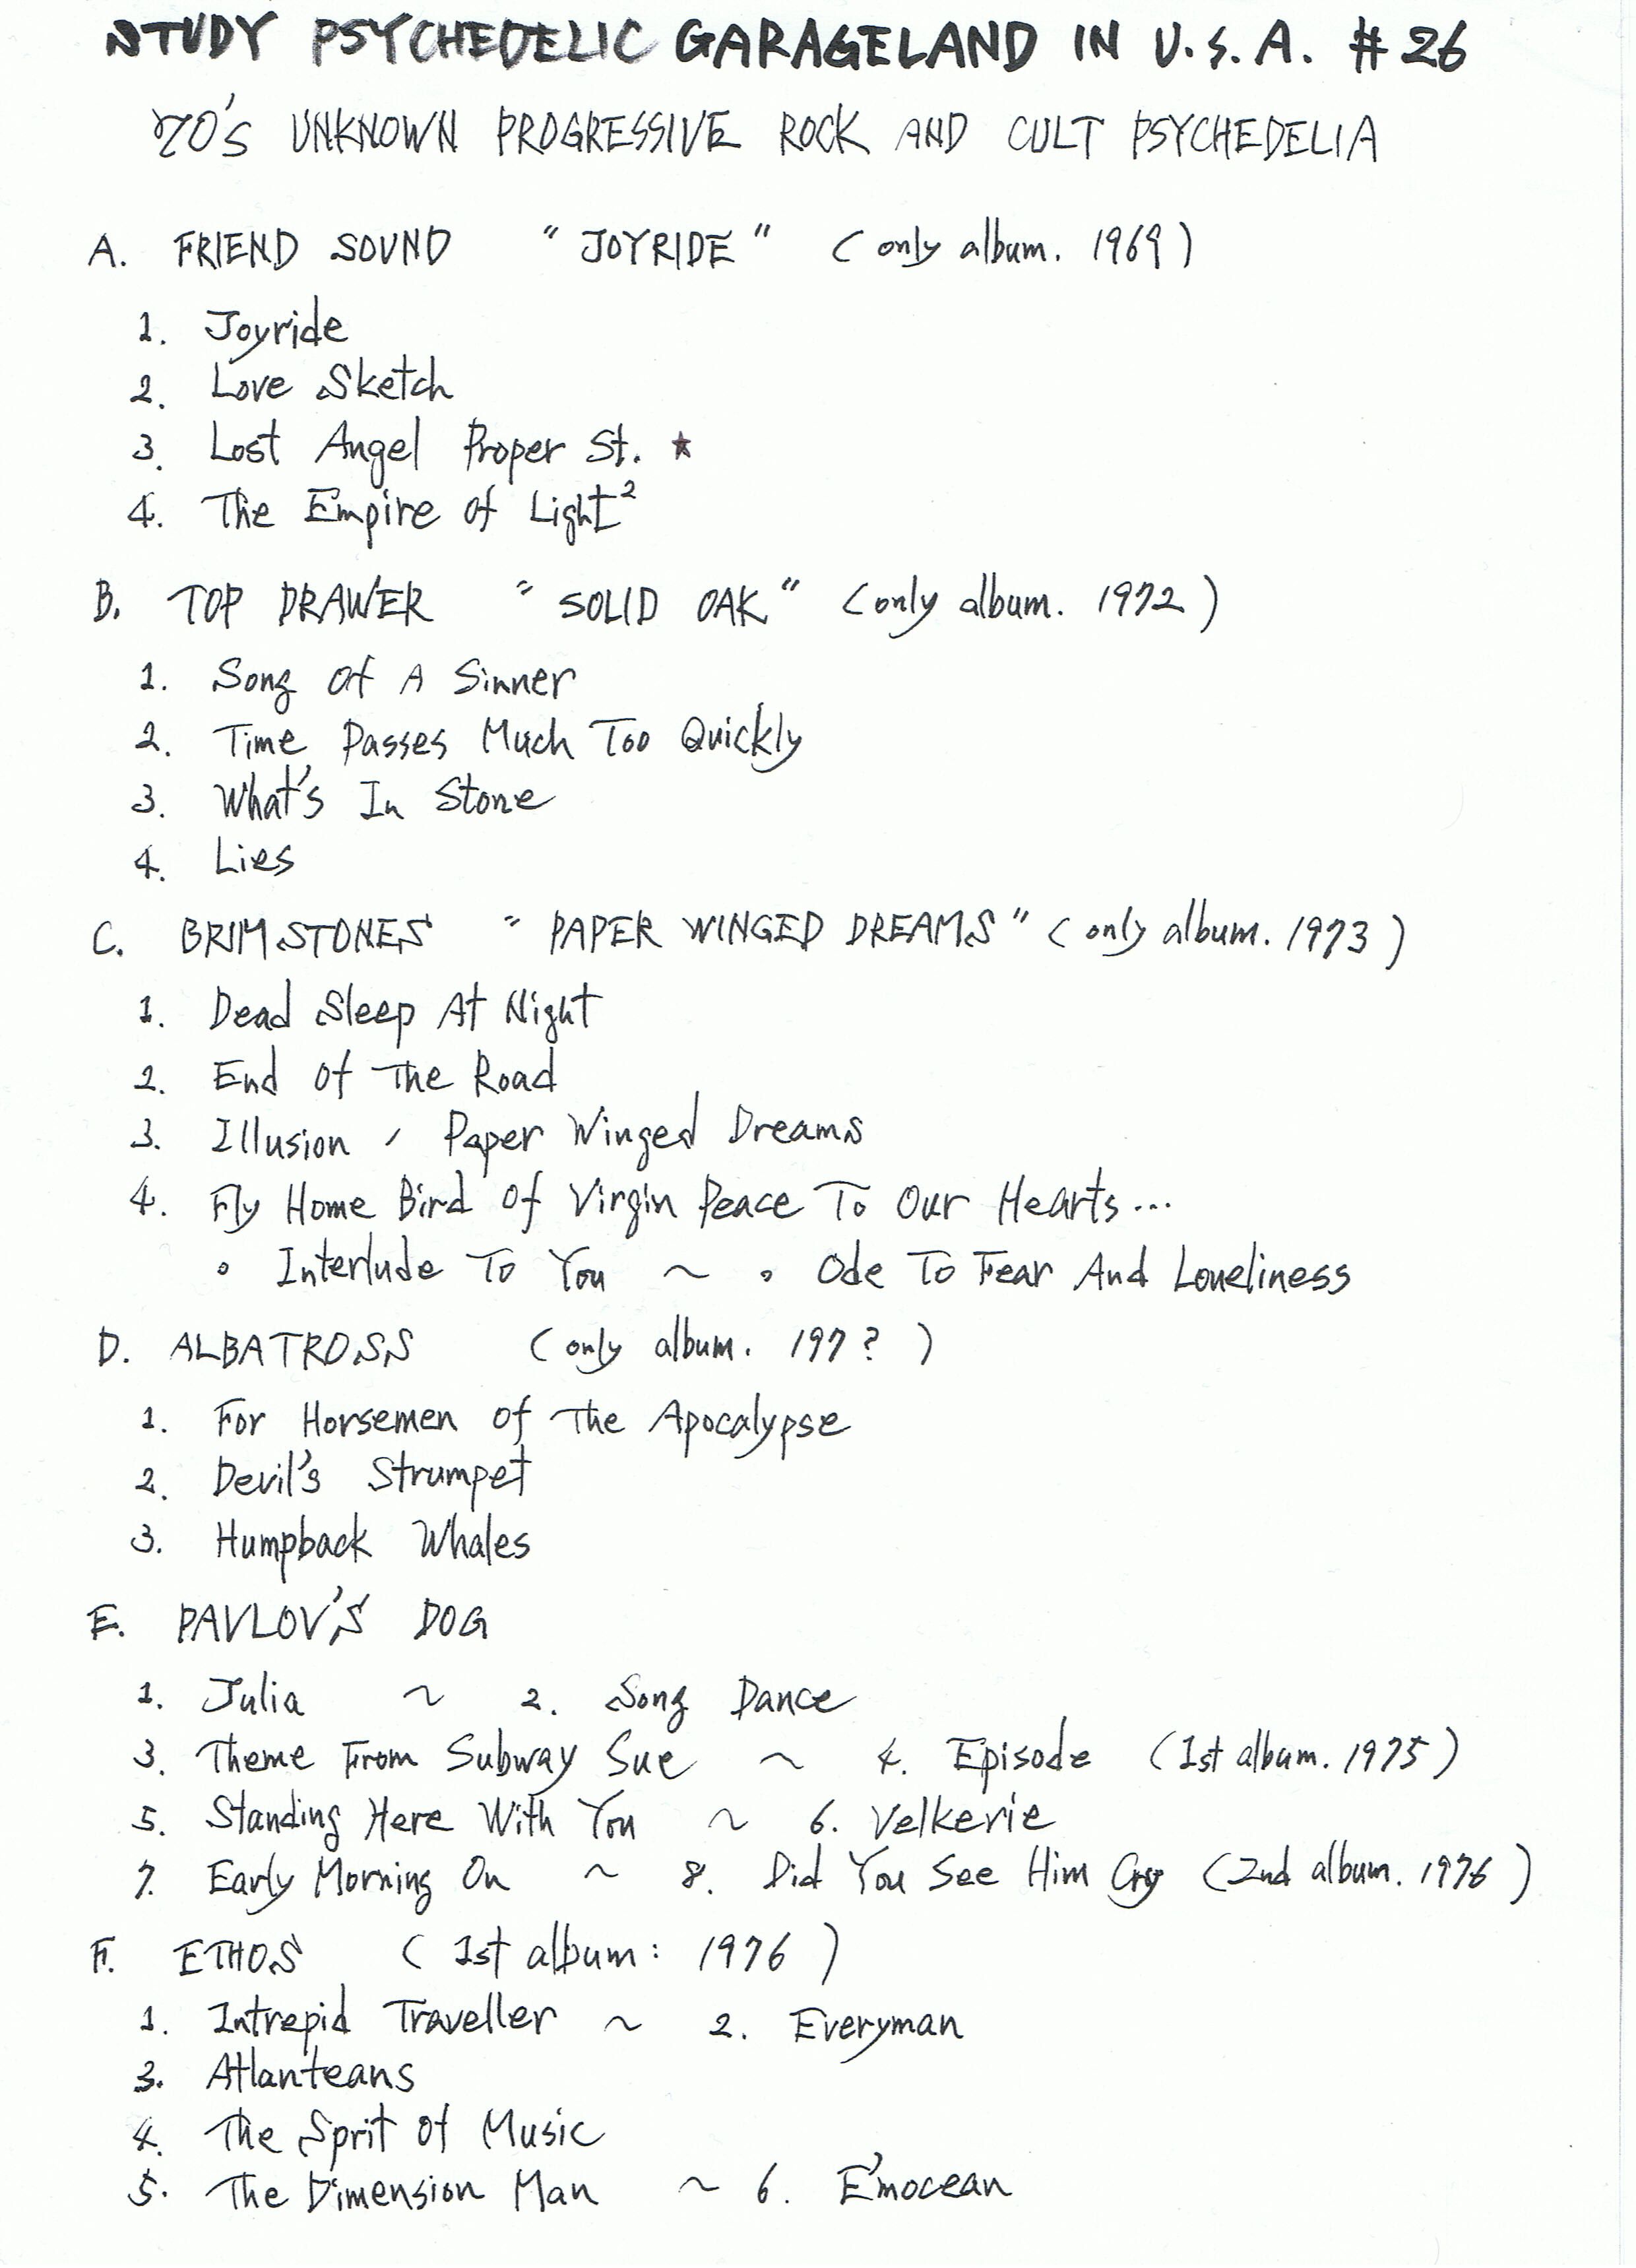 STUDY PSYCHEDELIC GARAGELAND IN U.S.A. #26
'70's UNKNOWN PROGRESSIVE ROCK AND CULT PSYCHEDELIA
A. FRIEND SOUND "JOYRIDE" (only album. 1969)
1. Joyride
2. Love Sketch
3. Lost Angel Proper St. ★
4. The Empire Of Light²
B. TOP DRAWER "SOLID OAK" (only album. 1972)
1. Song Of A Sinner
2. Time Passes Much Too Quickly
3. What's In Stone
4. Lies
C. BRIMSTONES "PAPER WINGED DREAMS" (only album. 1973)
1. Dead Sleep At Night
2. End Of The Road
3. Illusion / Paper Winged Dreams
4. Fly Home Bird Of Virgin Peace To Our Hearts...
∘ Interlude To You ~ ∘ Ode To Fear And Loneliness
D. ALBATROSS (only album. 197?)
1. For Horsemen Of The Apocalypse
2. Devil's Strumpet
3. Humpback Whales
E. PAVLOV'S DOG
1. Julia ~ 2. Song Dance
3. Theme From Subway Sue ~ 4. Episode (1st album. 1975)
5. Standing Here With You ~ 6. Velkerie
7. Early Morning On ~ 8. Did You See Him Cry (2nd album. 1976)
F. ETHOS (1st album: 1976)
1. Intrepid Traveller ~ 2. Everyman
3. Atlanteans
4. The Sprit Of Music
5. The Dimension Man ~ 6. E'mocean